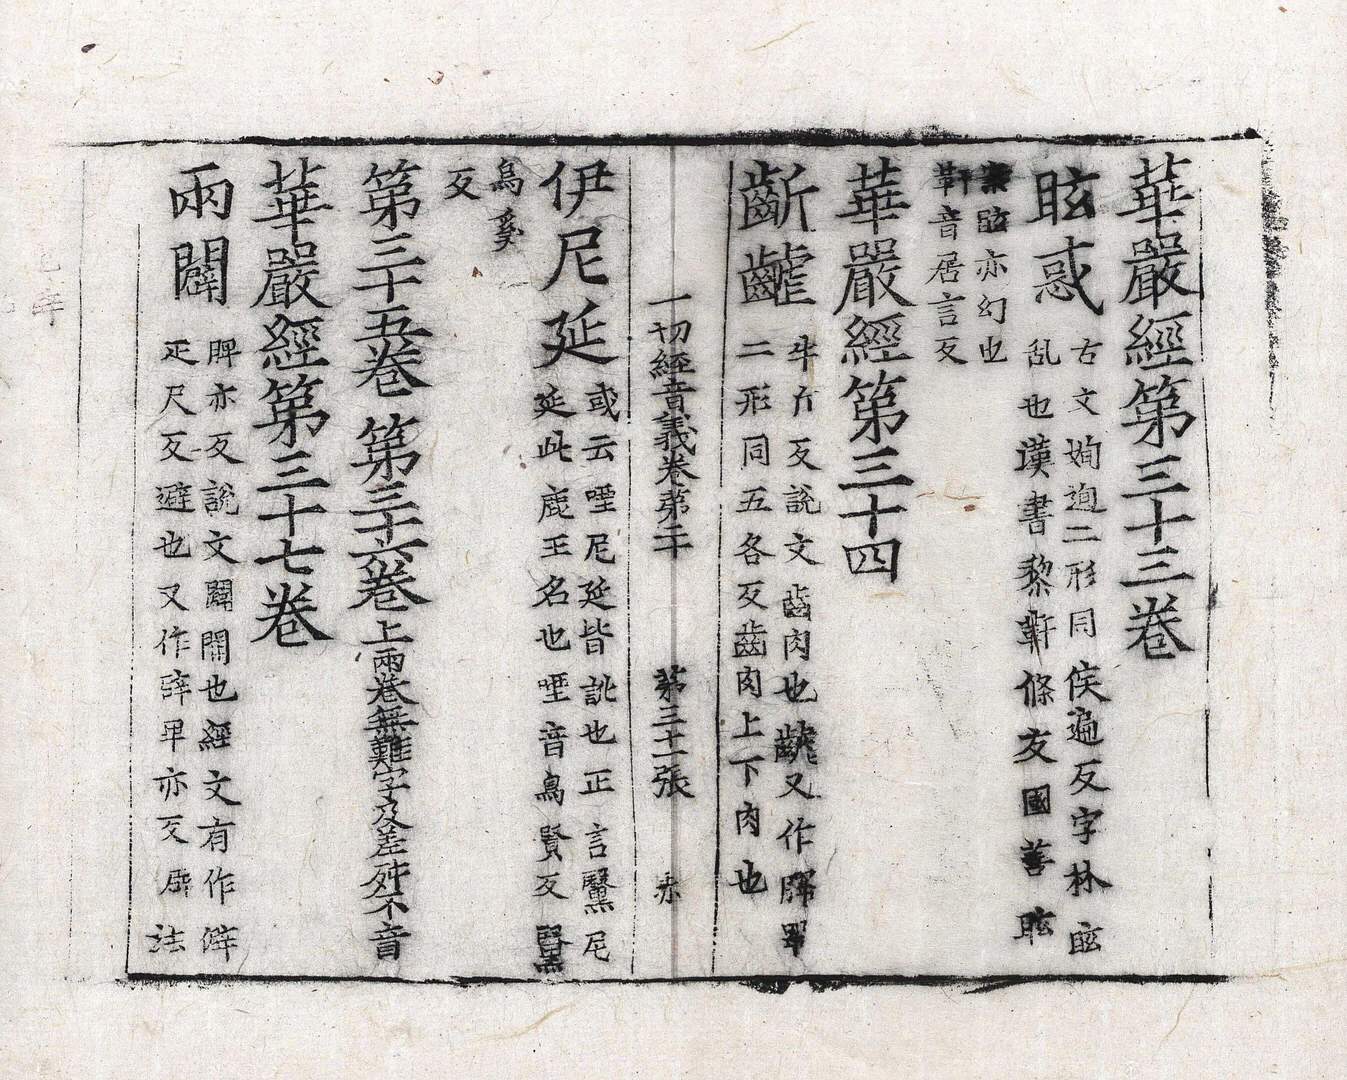 華嚴經第三十三卷
眩惑
古文姰迿二形同侯遍反字林眩
乱也漢書黎軒條友國善眩
案眩亦幻也
軒音居言反
華嚴經第三十四
齗齶
牛斤反説文齒肉也齶又作㗁咢
二形同五各反齒肉上下肉也
一切經音義卷第二十 第三十一張
伊尼延
或云哩尼延皆訛也正言黳尼
延此鹿王名也哩音烏賢反黳
烏奚
反
第三十五卷 第三十六卷上兩卷無難字及差殊不音
華嚴經第三十七卷
兩闢
脾亦反説文闢開也經文有作澼
疋尺反避也又作辟卑亦反辟法